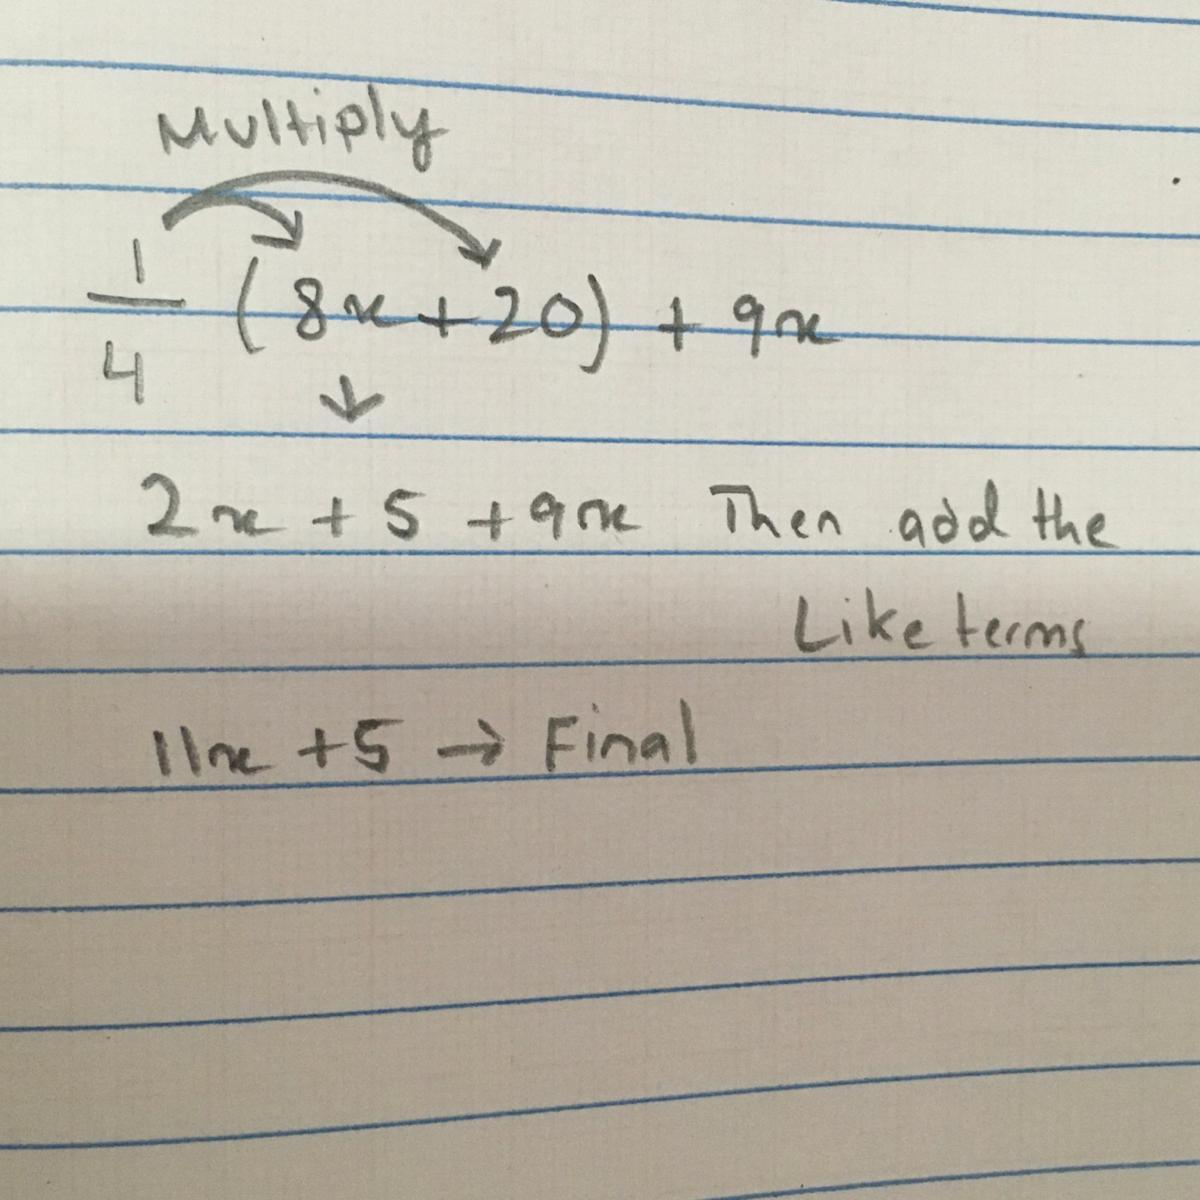 Multiply
1/4 (8x + 20) + 9x
↓
2x + 5 + 9x Then add the
Like terms
11x + 5 → Final